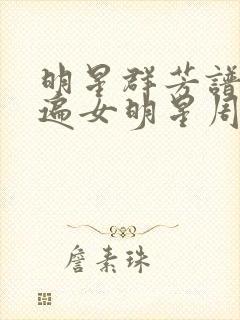 明星群芳譜
遍女明星周
詹素珠